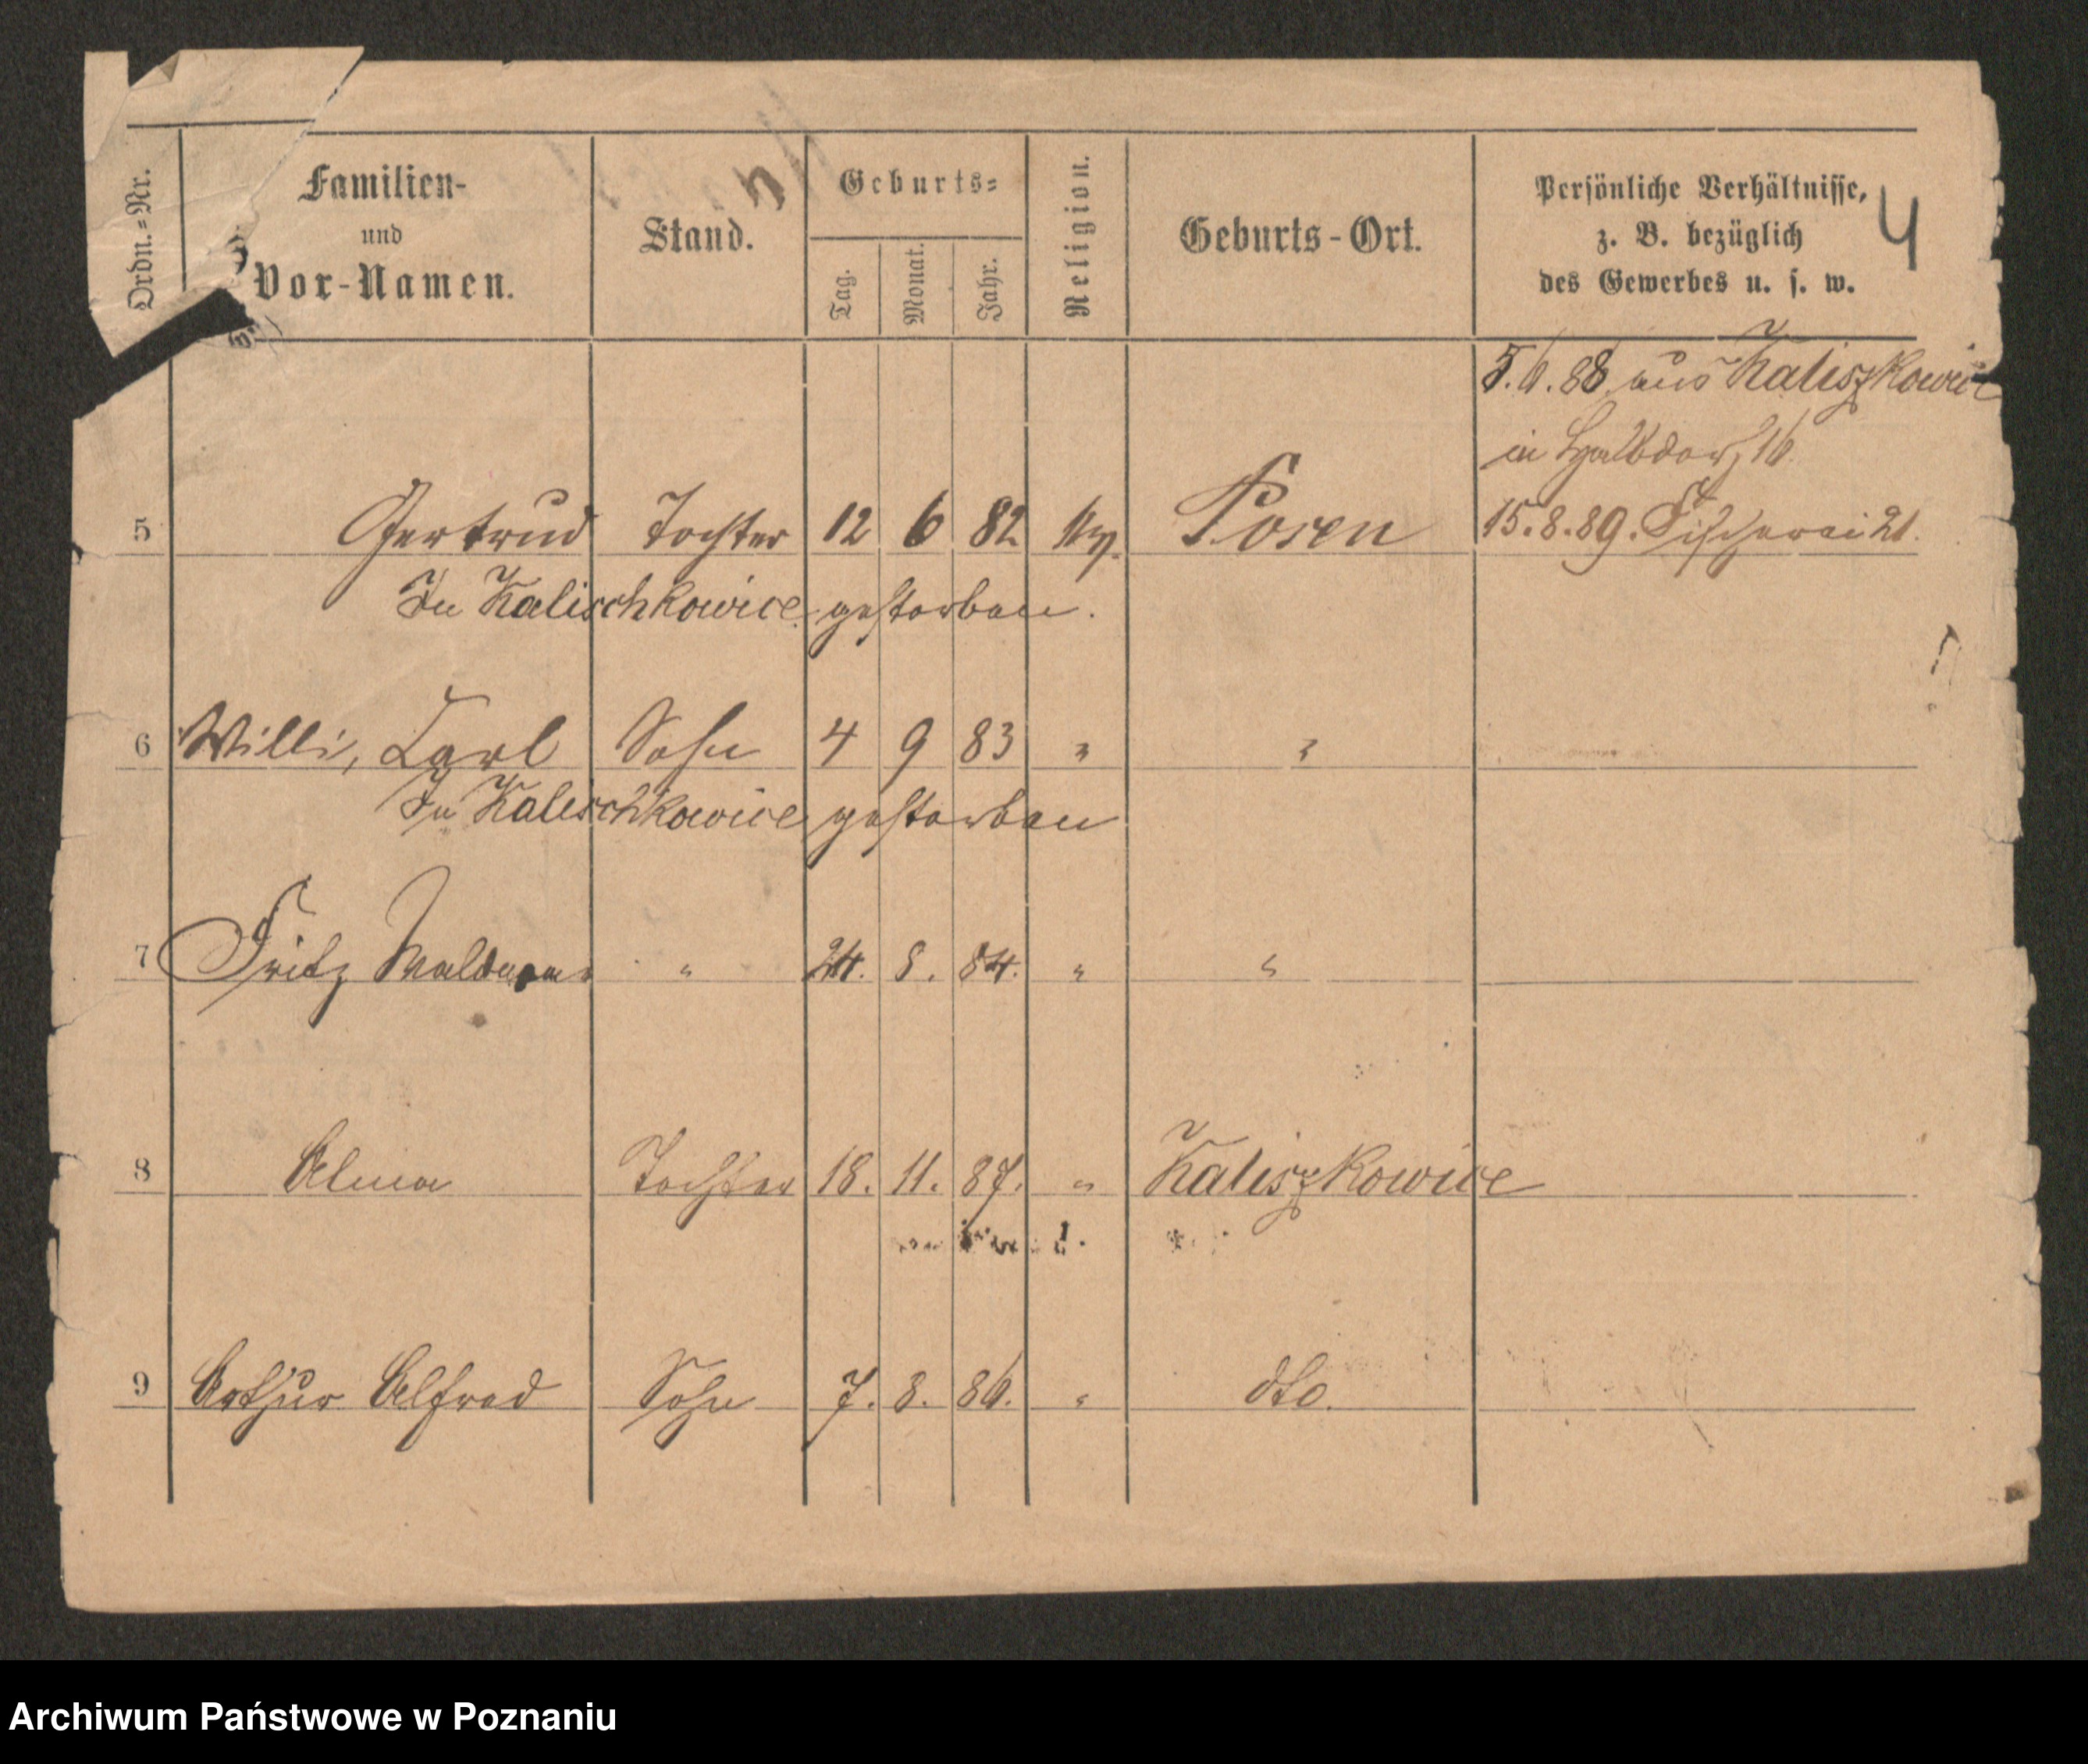 4
Ordn.-Nr.
Familien-
und
Vor-Namen.
Stand.
Geburts-
Tag.
Monat.
Jahr.
Religion.
Geburts-Ort.
Persönliche Verhältnisse,
z. B. bezüglich
des Gewerbes u. s. w.
4
5.6.88 aus Kaliszkowice
in Halbdorf 16.
5 Gertrud Tochter 12 6 82 Posen 15.8.89. Fischerei 21.
In Kalischkowice gestorben.
6 Willi, Carl Sohn 4 9 83 " "
In Kalischkowice gestorben
7 Fritz Waldemar " 24. 8. 84. " "
8 Alma Tochter 18. 11. 87. " Kaliszkowice
9 Arthur Alfred Sohn 7. 8. 86. " dto.
Archiwum Państwowe w Poznaniu